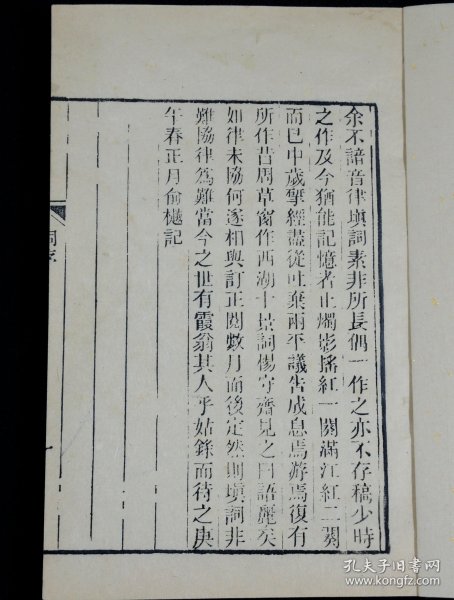 余不諳音律塡詞素非所長偶一作之亦不存稿少時
之作及今猶能記憶者止燭影搖紅一闋滿江紅二闋
而已中歲擘經盡從吐棄兩平議告成息焉游焉復有
所作昔周草窗作西湖十景詞惕守齋見之曰語麗矣
如律未協何遂相與訂正閱數月而後定然則塡詞非
難協律爲難當今之世有霞翁其人乎姑錄而待之庚
午春正月俞樾記
詞序
孔夫子旧书网
www.kongfz.com